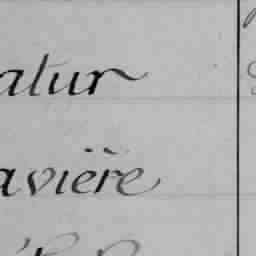 atur
avière